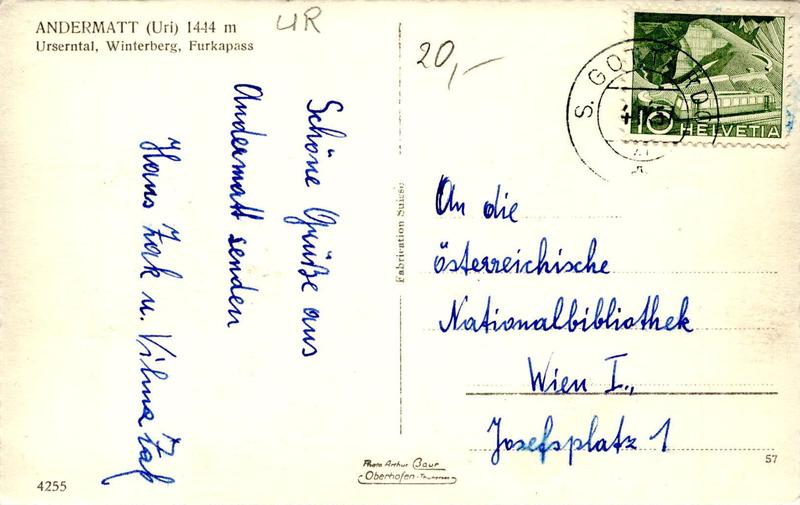 ANDERMATT (Uri) 1444 m
Urserntal, Winterberg, Furkapass
UR
20,-
S. GOTTARDO
10 HELVETIA
Schöne Grüße aus
Andermatt senden
Hans Zak u. Vilma Zak
An die
österreichische
Nationalbibliothek
Wien I.,
Josefsplatz 1
Fabrication Suisse
Photo Arthur Baur
Oberhofen-Thunersee
4255
57